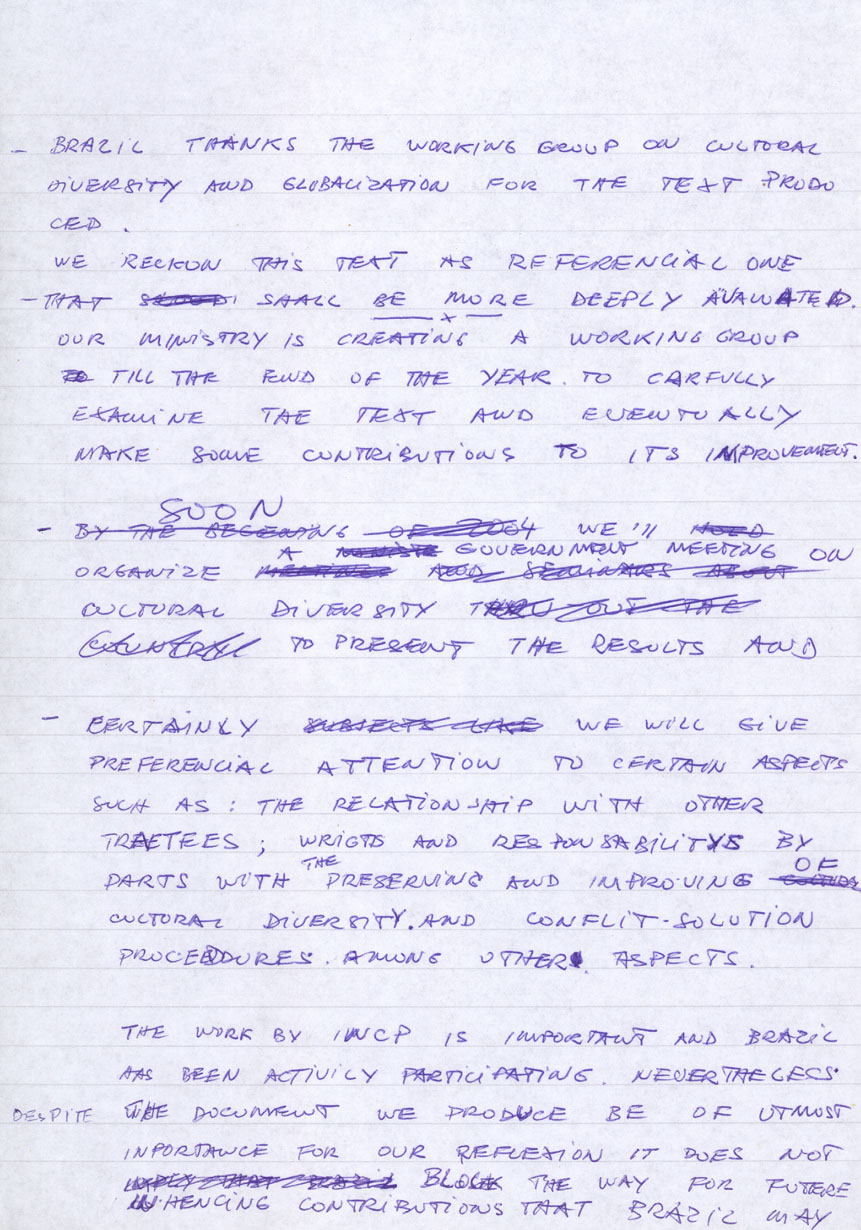 - BRAZIL THANKS THE WORKING GROUP ON CULTORAL
DIVERSITY AND GLOBALIZATION FOR THE TEXT PRODU
CED.
WE RECKON THIS TEXT AS REFERENCIAL ONE
- THAT SHALL BE MORE DEEPLY AVALUATED.
OUR MINISTRY IS CREATING A WORKING GROUP
TILL THE END OF THE YEAR. TO CARFULLY
EXAMINE THE TEXT AND EVENTUALLY
MAKE SOME CONTRIBUTIONS TO ITS IMPROVEMENT.
SOON
- BY THE BEGENING OF 2004 WE'll
A GOVERNMENT MEETING ON
ORGANIZE AND SEMINARS ABOUT
CULTORAL DIVERSITY THRU OUT THE
COUNTRY TO PRESENT THE RESULTS AND
- CERTAINLY SUBJECTS LIKE WE WILL GIVE
PREFERENCIAL ATTENTION TO CERTAIN ASPECTS
SUCH AS: THE RELATIONSHIP WITH OTHER
TRAETEES; WRIGTS AND RESPONSABILITYS BY
THE OF
PARTS WITH PRESERVING AND IMPROVING
CULTORAL DIVERSITY. AND CONFLIT-SOLUTION
PROCEDURES. AMONG OTHERS. ASPECTS.
THE WORK BY INCP IS IMPORTANT AND BRAZIL
HAS BEEN ACTIVILY PARTICIPATING. NEVERTHELESS
DESPITE THE DOCUMENT WE PRODUCE BE OF UTMOST
INPORTANCE FOR OUR REFLEXION IT DOES NOT
IMPLY THAT BRAZIL BLOCK THE WAY FOR FUTERE
INHENCING CONTRIBUTIONS THAT BRAZIL MAY